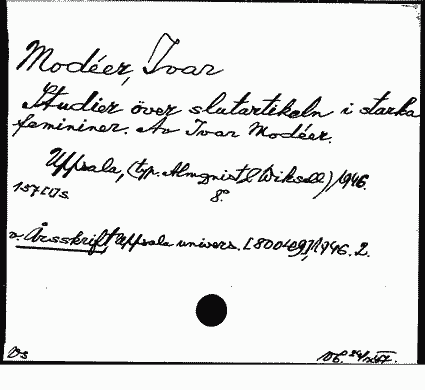 Modéer, Ivar
Studier över slutartikeln i starka
femininer. Av Ivar Modéer.
Uppsala, (typ. Almqvist & Wiksell) 1946.
157[1]s. 8º.
a. Årsskrift, Uppsala univers. [800469] 1946. 2.
Vs